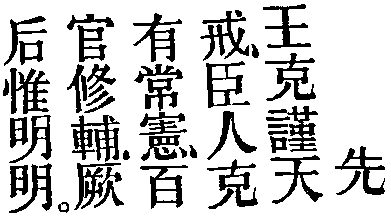 先
王克謹天
戒、臣人克
有常憲、百
官修輔、厥
后惟明明。